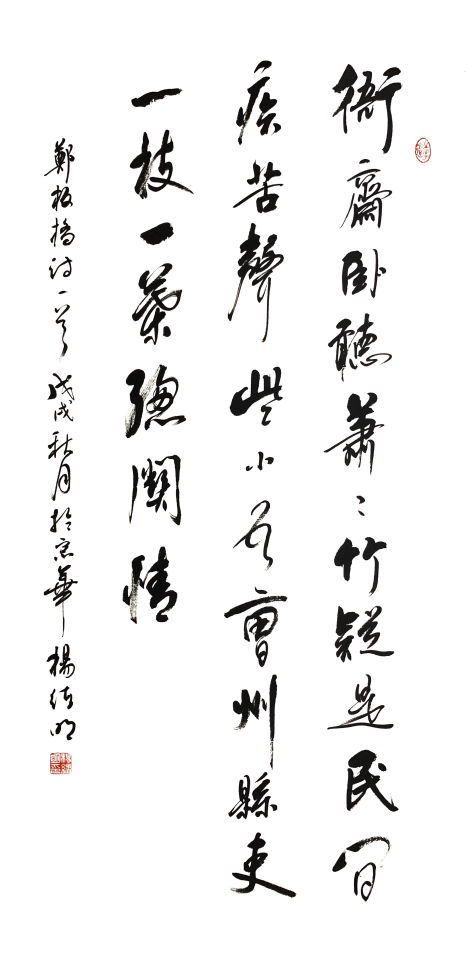 衙齋卧聽蕭々竹疑是民間
疾苦聲些小吾曹州縣吏
一枝一葉總關情
鄭板橋詩一首戊戌秋月於京華楊明